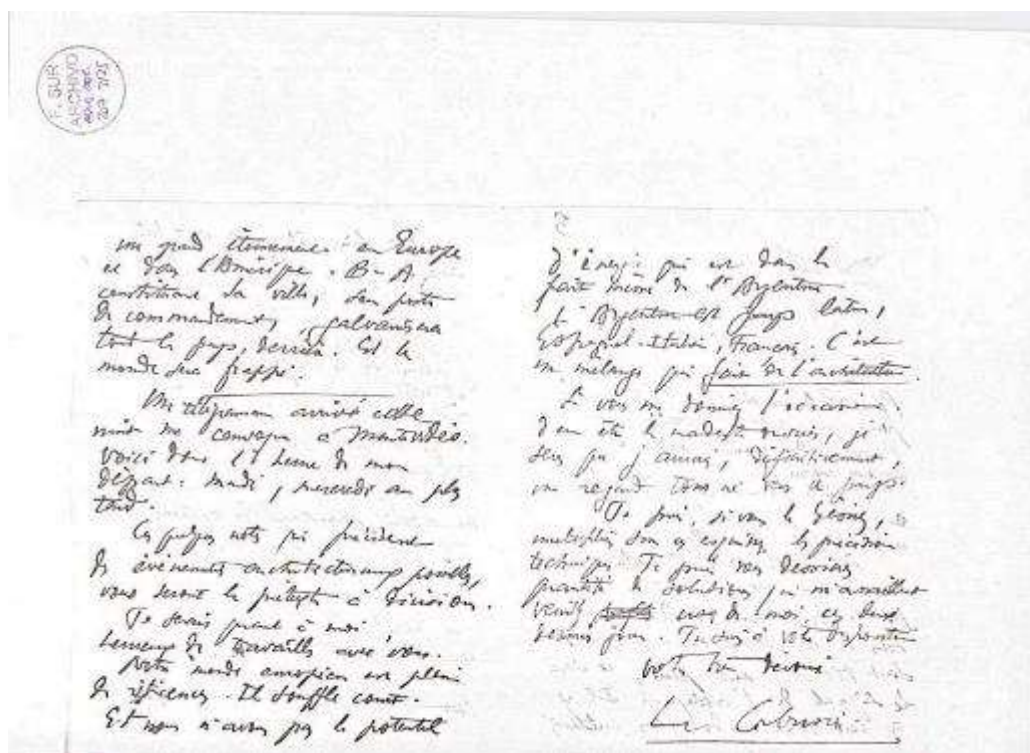 F. SUR
ARCHIVO
un grand étonnement en Europe
et dans l'Amérique. B-A
constituant sa ville, son poste
de commandement, galvanisera
tout le pays, derrière. Et le
monde sera frappé.
Un télégramme arrivé cette
minute me convoque à Montevideo.
Voici donc l'heure de mon
départ: mardi, mercredi au plus
tard.
Ces quelques notes qui précèdent
des événements architecturaux possibles,
vous seront le prétexte à décision.
Je serais quant à moi
heureux de travailler avec vous.
Notre monde européen est plein
de réticences. Il souffle court.
Et nous n'avons pas le potentiel
5
d'énergie qui est dans le
fait même de l'Argentine
L'Argentine est pays latin,
Espagnol-italien, Français. C'est
un mélange qui fait de l'architecture.
Si vous me donniez l'occasion
d'en être le modeste ouvrier, je
sens que j'aurai, définitivement,
un regard tourné vers ce pays.
Je puis, si vous le désirez,
multiplier dans ces esquisses les précisions
techniques. Je puis vous dessiner
quantité de solutions qui m'assaillent
depuis ces deux
derniers jours. Toujours à votre disposition
votre bien dévoué
Le Corbusier